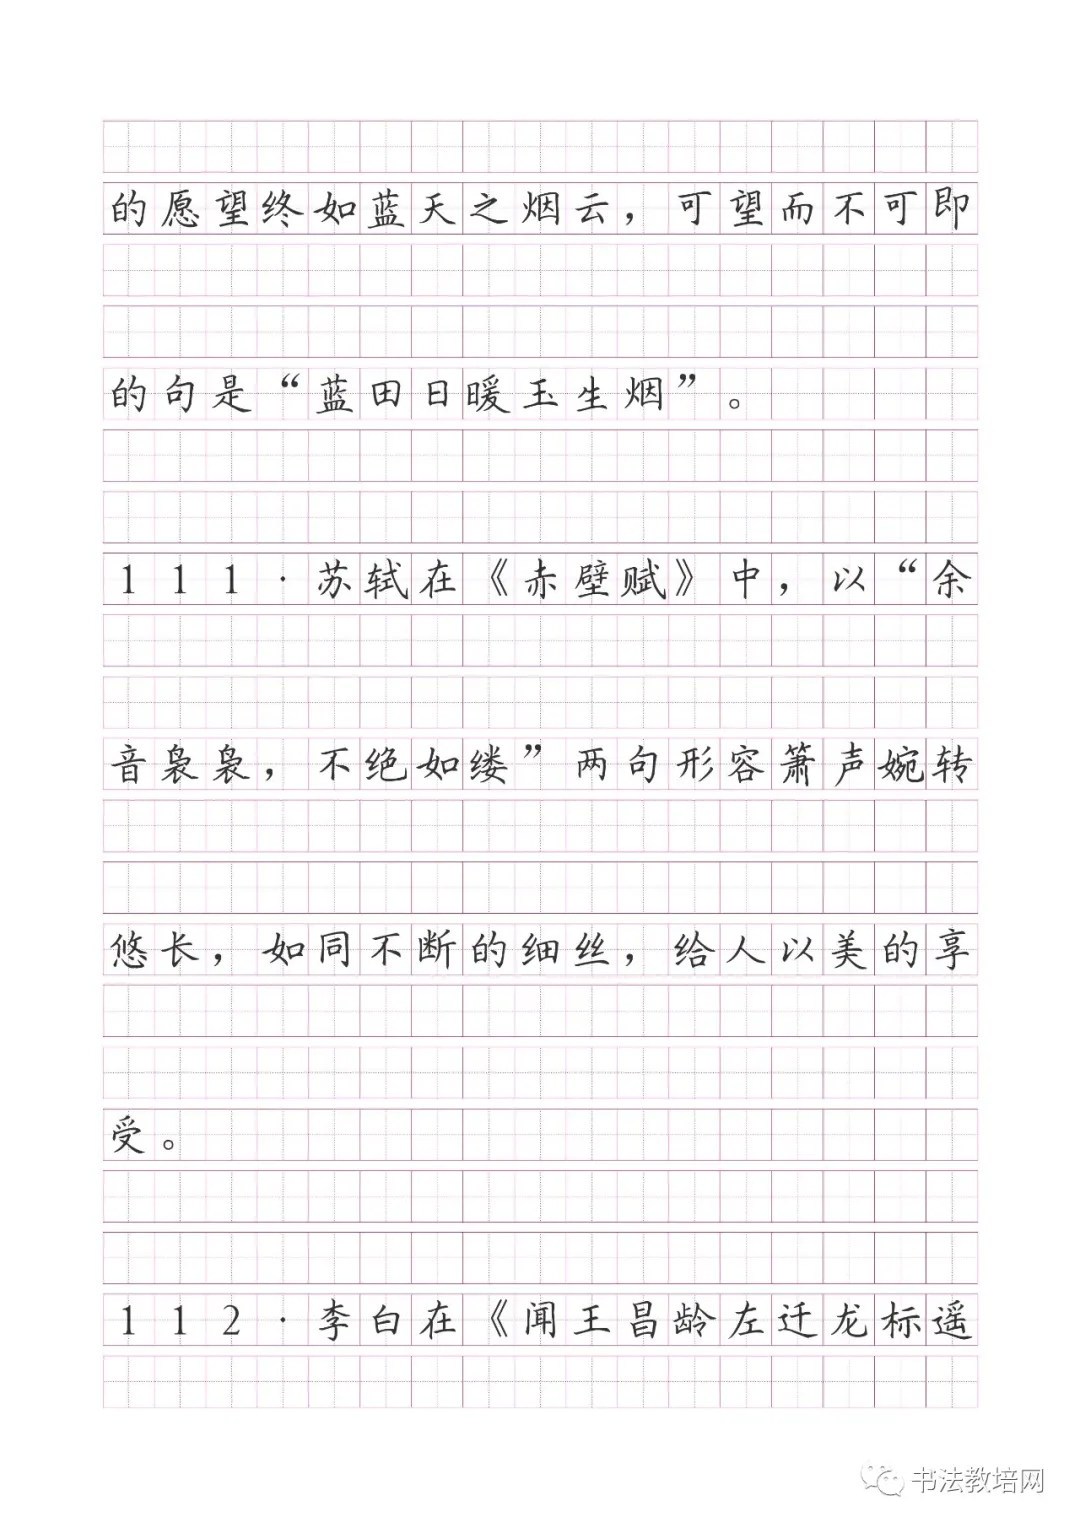 的愿望终如蓝天之烟云，可望而不可即
的句是“蓝田日暖玉生烟”。
111·苏轼在《赤壁赋》中，以“余
音袅袅，不绝如缕”两句形容箫声婉转
悠长，如同不断的细丝，给人以美的享
受。
112·李白在《闻王昌龄左迁龙标遥
书法教培网